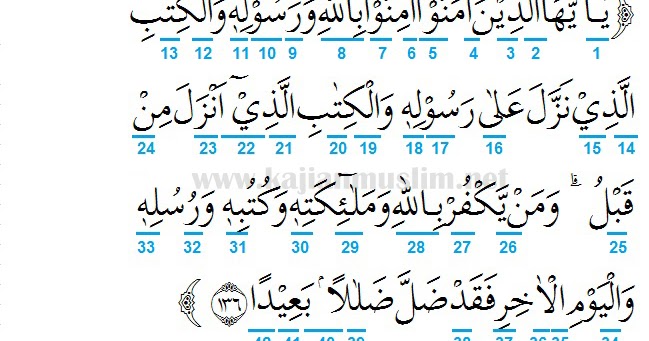 يٰٓاَيُّهَا الَّذِيْنَ اٰمَنُوْٓا اٰمِنُوْا بِاللّٰهِ وَرَسُوْلِهٖ وَالْكِتٰبِ
13 12 11 10 9 8 7 6 5 4 3 2 1
الَّذِيْ نَزَّلَ عَلٰى رَسُوْلِهٖ وَالْكِتٰبِ الَّذِيْٓ اَنْزَلَ مِنْ
24 23 22 21 20 19 18 17 16 15 14
www.kajianmuslim.net
قَبْلُ ۗ وَمَنْ يَّكْفُرْ بِاللّٰهِ وَمَلٰۤىِٕكَتِهٖ وَكُتُبِهٖ وَرُسُلِهٖ
33 32 31 30 29 28 27 26 25
وَالْيَوْمِ الْاٰخِرِ فَقَدْ ضَلَّ ضَلٰلًا ۢ بَعِيْدًا ١٣٦
42 41 40 39 38 37 36 35 34